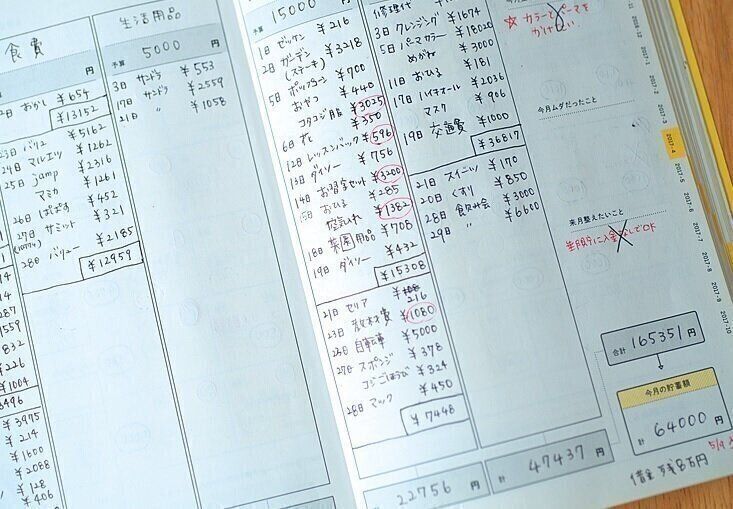 食費
円
2日 おかし ¥654
¥13152
23日 バリュ ¥5162
24日 マルエツ ¥1262
25日 jamp ¥2316
マミカ ¥1261
26日 しばらず ¥452
27日 サミット ¥321
28日 バリュー ¥2185
¥12959
¥1004
¥3975
¥214
¥1600
¥2088
¥128
¥406
生活用品
予算 5000 円
3日 サンドラ ¥553
17日 サンドラ ¥2559
21日 〃 ¥1058
予算 15000 円
1日 ゼッケン ¥216
2日 ガーデン ¥3218
(ステーキ)
5日 ポップコーン ¥700
おやつ ¥440
コラコジ服 ¥3025
6日 花 ¥350
12日 レッスンバック ¥596
13日 ダイソー ¥756
14日 お習字セット ¥3200
15日 おひる ¥285
空気入れ ¥1382
18日 菜園用品 ¥708
19日 ダイソー ¥432
¥15308
21日 セリア ¥108
216
23日 教材費 ¥1080
25日 自転車 ¥5000
27日 スポンジ ¥378
コジごほうび ¥324
28日 マック ¥450
¥7448
22756 円
修理代
3日 クレンジング ¥1674
5日 パーマカラー ¥18020
めがね ¥3000
11日 おひる ¥181
17日 ハイチオール ¥2036
マスク ¥906
19日 交通費 ¥1000
¥36817
21日 スイーツ ¥170
20日 くすり ¥850
28日 飲み会 ¥3000
29日 〃 ¥6600
計 47437 円
☆ カラーとパーマを
かけない
今月ムダだったこと
来月整えたいこと
合計 165351 円
今月の貯蓄額
計 64000 円
借金 残8万円
2017-1
2017-2
2017-3
2017-4
2017-5
2017-6
2017-7
2017-8
2017-9
2017-10